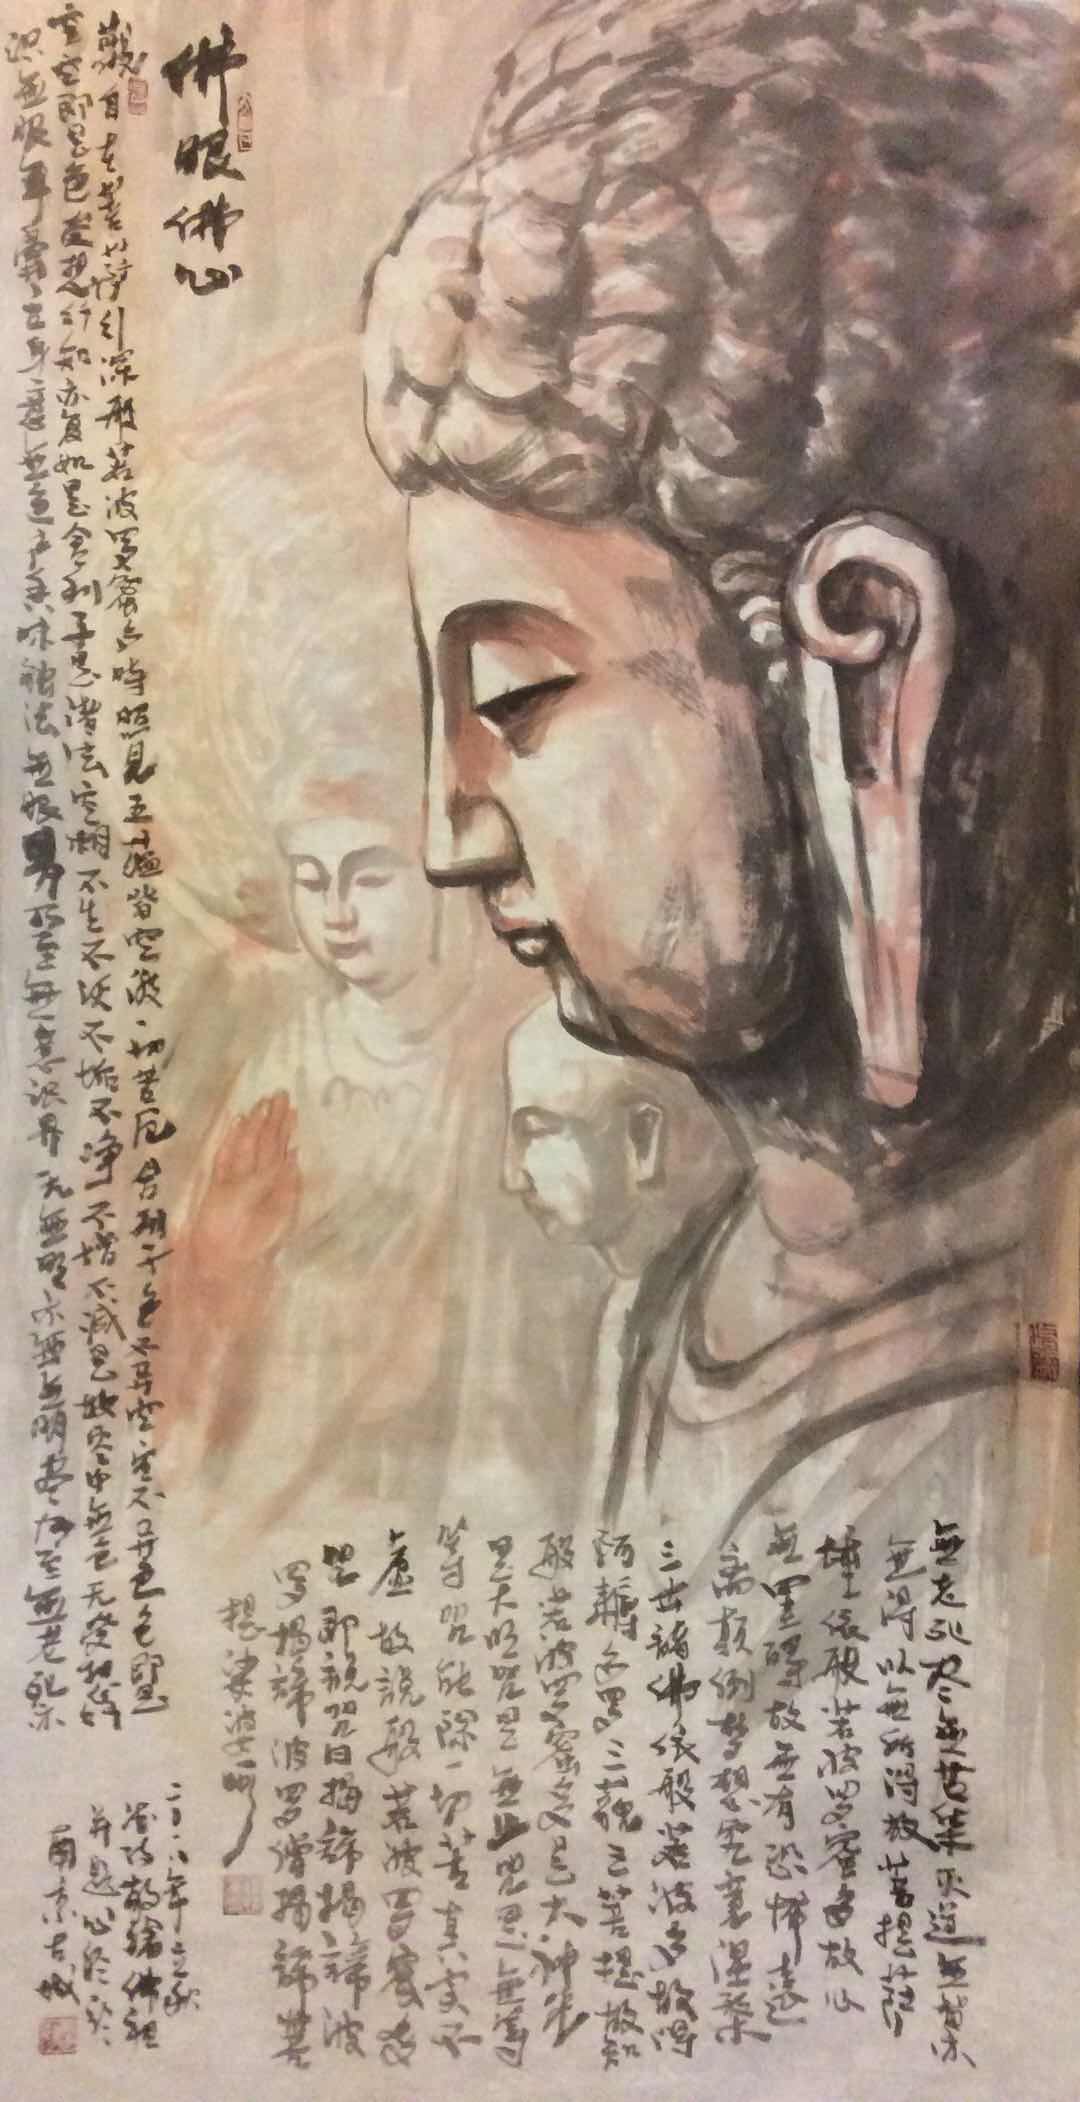 佛眼佛心
觀自在菩薩引深般若波罗密多時照見五蕴皆空渡一切苦厄舍利子色不异空空不异色色即是
空空即是色受想行知亦复如是舍利子是諸法空相不生不灭不垢不净不增不減是故空中無色无受想行
识無眼耳鼻舌身意無色声香味触法無眼界乃至無意识界无無明亦無無明尽乃至無老死亦
無老死尽無苦集灭道無智亦
無得以無所得故菩提萨
埵依般若波罗密多故心
無罣碍故無有恐怖遠
离颠倒梦想究竟涅槃
三世諸佛依般若波多故得
阿耨多罗三藐三菩提故知
般若波罗密多是大神咒
是大明咒是無上咒是無等
等咒能除一切苦真实不
虚故説般若波罗密多
咒即説咒曰揭諦揭諦波
罗揭諦波罗僧揭諦菩
提娑婆訶
二〇一八年立秋
敬繪佛祖
并題心经於
南京古城